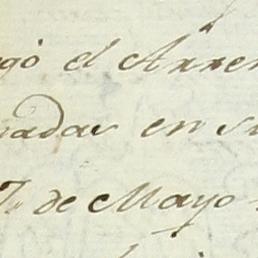 gó el Arren
nadas en su
7. de Mayo